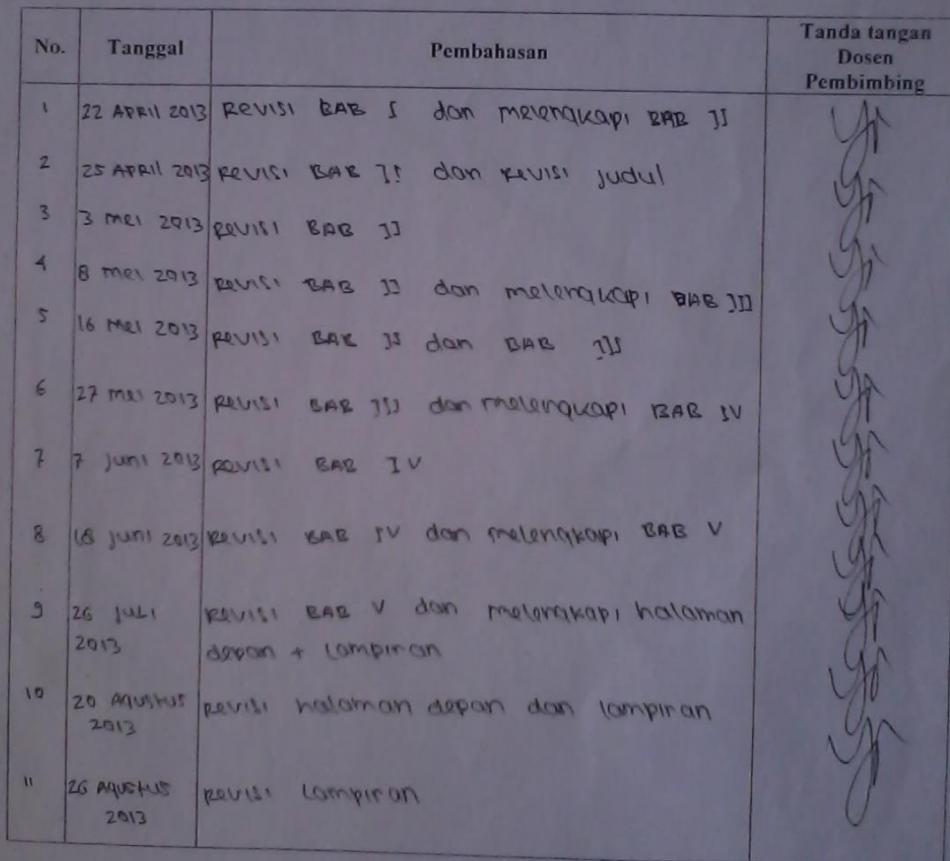 No. Tanggal Pembahasan Tanda tangan Dosen Pembimbing
1 22 APRIL 2013 REVISI BAB I dan melengkapi BAB II
2 25 APRIL 2013 REVISI BAB II dan REVISI judul
3 3 mei 2013 REVISI BAB II
4 8 mei 2013 REVISI BAB II dan melengkapi BAB III
5 16 Mei 2013 REVISI BAB II dan BAB III
6 27 mei 2013 REVISI BAB III dan melengkapi BAB IV
7 7 juni 2013 REVISI BAB IV
8 18 juni 2013 REVISI BAB IV dan melengkapi BAB V
9 26 JULI 2013 REVISI BAB V dan melengkapi halaman
depan + Lampiran
10 20 Agustus 2013 REVISI halaman depan dan lampiran
11 26 Agustus 2013 REVISI Lampiran